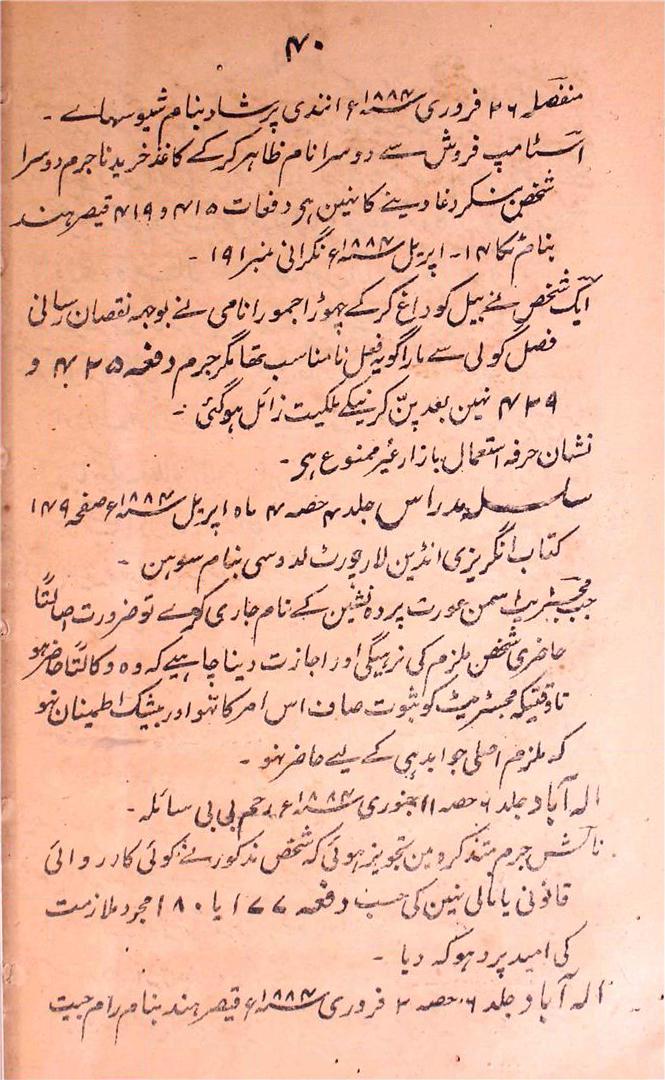 ۴۰
منفصلہ ۲۶ فروری سنہ ۱۸۸۴ء انندی پرشاد بنام شیو سہاے ۔
اسٹامپ فروش سے دوسرا نام ظاہر کر کے کاغذ خریدنا جرم دوسرا
شخص بنکر دغا دینے کا نہین ہی دفعات ۴۱۵ و ۴۱۹ قیصر ہند
بنام ۱۴ ۔ اپریل سنہ ۱۸۸۴ء نگرانی نمبر ۱۹۱ ۔
ایک شخص نے بیل کو داغ کر کے چھوڑا جمورا نامی نے بوجہ نقصان رسانی
فصل گولی سے مارا گو یہ فعل نا مناسب تھا مگر جرم دفعہ ۴۲۵ و
۴۲۹ نہین بعد پن کرنیکے ملکیت زائل ہو گئی ۔
نشان حرفہ استعمال بازار غیر ممنوع ہی ۔
سلسلہ مدراس جلد ۷ حصہ ۴ ماہ اپریل سنہ ۱۸۸۴ء صفحہ ۱۷۹
کتاب انگریزی انڈین لا رپورٹ لدوسی بنام سوہن ۔
جب مجسٹریٹ سمن عورت پردہ نشین کے نام جاری کرے تو ضرورت اصالتًا
حاضری شخص ملزم کی نرہیگی اور اجازت دینا چاہیے کہ وہ وکالتًا حاضر ہو
تا وقتیکہ مجسٹریٹ کو ثبوت صاف اس امر کا نہو اور بیشک اطمینان نہو
کہ ملزم اصلی جوابدہی کے لیے حاضر نہو ۔
الہ آباد جلد ۶ حصہ ۱۱ جنوری سنہ ۱۸۸۴ء رحم بی بی سائلہ ۔
نالش جرم متذکرہ مین تجویز ہوئی کہ شخص مذکور نے کوئی کارروائی
قانونی یا مالی نہین کی حسب دفعہ ۱۷۷ یا ۱۸۰ مجرد ملازمت
کی امید پر دہوکہ دیا ۔
الہ آباد جلد ۶ حصہ ۲ فروری سنہ ۱۸۸۴ء قیصر ہند بنام رام جیت